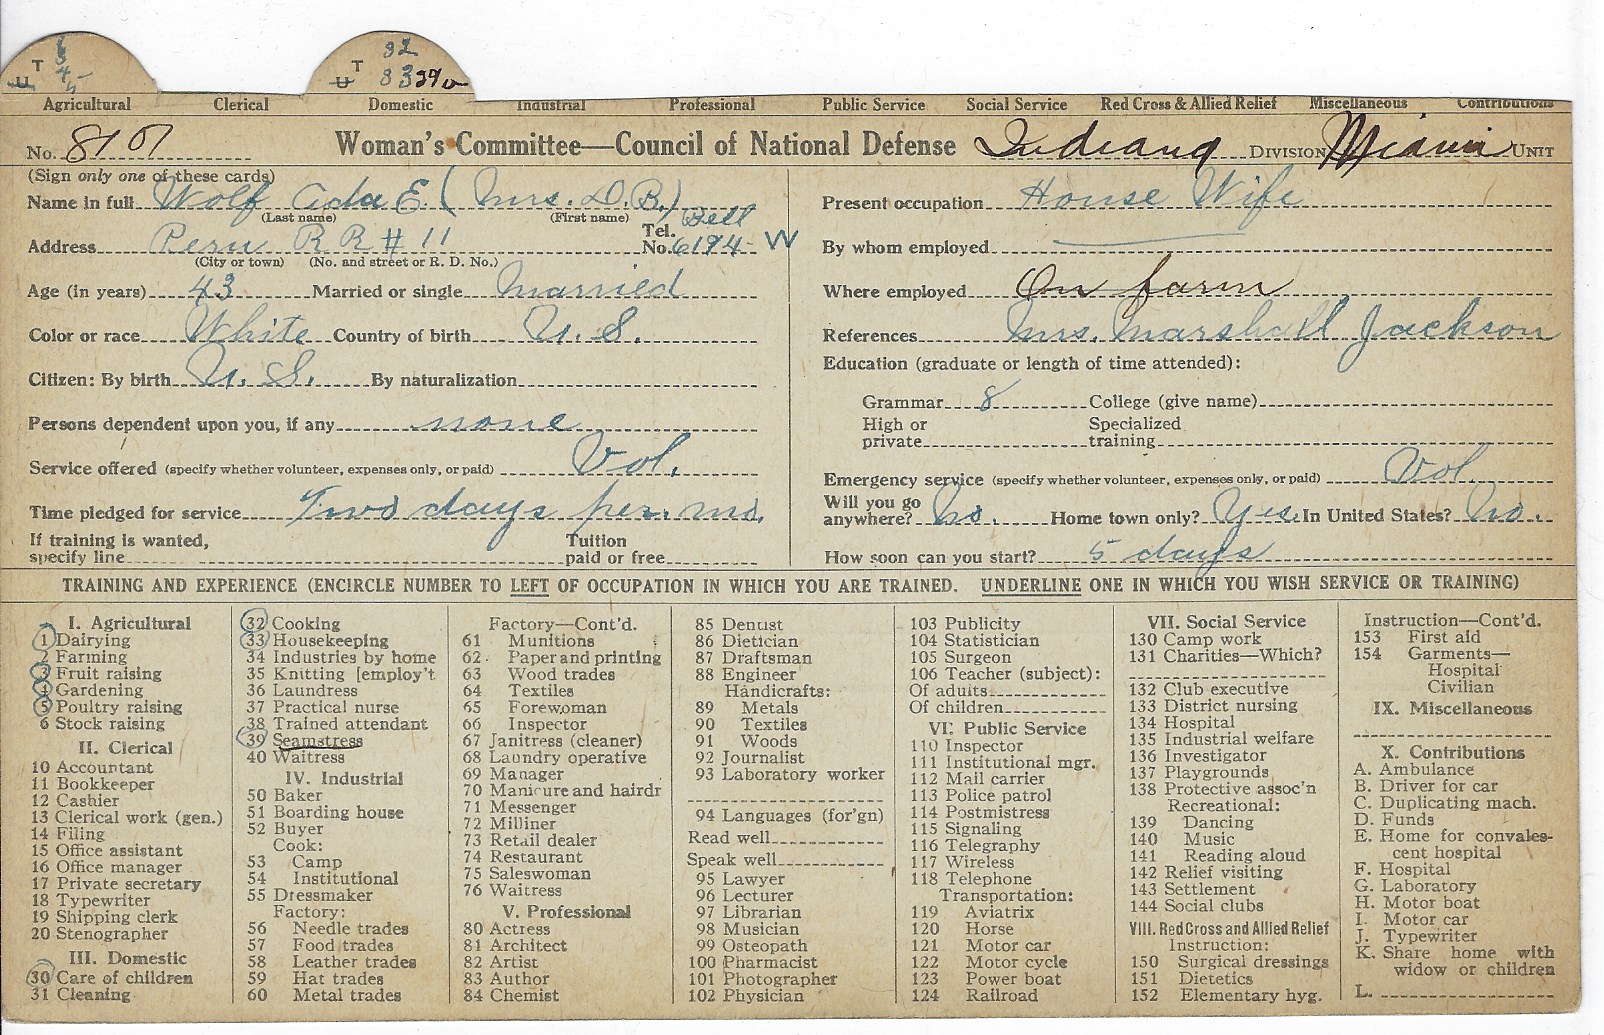 T
U
T 32
U 33 39
Agricultural Clerical Domestic Industrial Professional Public Service Social Service Red Cross & Allied Relief Miscellaneous Contributions
No. 8101 Woman's Committee—Council of National Defense Indiana DIVISION Miami UNIT
(Sign only one of these cards)
Name in full Wolf Ada E. (Mrs. D. B.)
(Last name) (First name)
Address Peru R R # 11 Tel. No. Bell 6194-W
(City or town) (No. and street or R. D. No.)
Age (in years) 43 Married or single Married
Color or race White Country of birth U. S.
Citizen: By birth U. S. By naturalization
Persons dependent upon you, if any none
Service offered (specify whether volunteer, expenses only, or paid) Vol.
Time pledged for service Two days per. mo.
If training is wanted, specify line Tuition paid or free
Present occupation House Wife
By whom employed
Where employed On farm
References Mrs. Marshall Jackson
Education (graduate or length of time attended):
Grammar 8 College (give name)
High or private Specialized training
Emergency service (specify whether volunteer, expenses only, or paid) Vol.
Will you go anywhere? No. Home town only? Yes. In United States? No.
How soon can you start? 5 days
TRAINING AND EXPERIENCE (ENCIRCLE NUMBER TO LEFT OF OCCUPATION IN WHICH YOU ARE TRAINED. UNDERLINE ONE IN WHICH YOU WISH SERVICE OR TRAINING)
I. Agricultural
1 Dairying
2 Farming
3 Fruit raising
4 Gardening
5 Poultry raising
6 Stock raising
II. Clerical
10 Accountant
11 Bookkeeper
12 Cashier
13 Clerical work (gen.)
14 Filing
15 Office assistant
16 Office manager
17 Private secretary
18 Typewriter
19 Shipping clerk
20 Stenographer
III. Domestic
30 Care of children
31 Cleaning
32 Cooking
33 Housekeeping
34 Industries by home
35 Knitting [employ't
36 Laundress
37 Practical nurse
38 Trained attendant
39 Seamstress
40 Waitress
IV. Industrial
50 Baker
51 Boarding house
52 Buyer
Cook:
53 Camp
54 Institutional
55 Dressmaker
Factory:
56 Needle trades
57 Food trades
58 Leather trades
59 Hat trades
60 Metal trades
Factory—Cont'd.
61 Munitions
62 Paper and printing
63 Wood trades
64 Textiles
65 Forewoman
66 Inspector
67 Janitress (cleaner)
68 Laundry operative
69 Manager
70 Manicure and hairdr
71 Messenger
72 Milliner
73 Retail dealer
74 Restaurant
75 Saleswoman
76 Waitress
V. Professional
80 Actress
81 Architect
82 Artist
83 Author
84 Chemist
85 Dentist
86 Dietician
87 Draftsman
88 Engineer
Handicrafts:
89 Metals
90 Textiles
91 Woods
92 Journalist
93 Laboratory worker
94 Languages (for'gn)
Read well
Speak well
95 Lawyer
96 Lecturer
97 Librarian
98 Musician
99 Osteopath
100 Pharmacist
101 Photographer
102 Physician
103 Publicity
104 Statistician
105 Surgeon
106 Teacher (subject):
Of adults
Of children
VI. Public Service
110 Inspector
111 Institutional mgr.
112 Mail carrier
113 Police patrol
114 Postmistress
115 Signaling
116 Telegraphy
117 Wireless
118 Telephone
Transportation:
119 Aviatrix
120 Horse
121 Motor car
122 Motor cycle
123 Power boat
124 Railroad
VII. Social Service
130 Camp work
131 Charities—Which?
132 Club executive
133 District nursing
134 Hospital
135 Industrial welfare
136 Investigator
137 Playgrounds
138 Protective assoc'n
Recreational:
139 Dancing
140 Music
141 Reading aloud
142 Relief visiting
143 Settlement
144 Social clubs
VIII. Red Cross and Allied Relief
Instruction:
150 Surgical dressings
151 Dietetics
152 Elementary hyg.
Instruction—Cont'd.
153 First aid
154 Garments—
Hospital
Civilian
IX. Miscellaneous
X. Contributions
A. Ambulance
B. Driver for car
C. Duplicating mach.
D. Funds
E. Home for convales-
cent hospital
F. Hospital
G. Laboratory
H. Motor boat
I. Motor car
J. Typewriter
K. Share home with
widow or children
L.